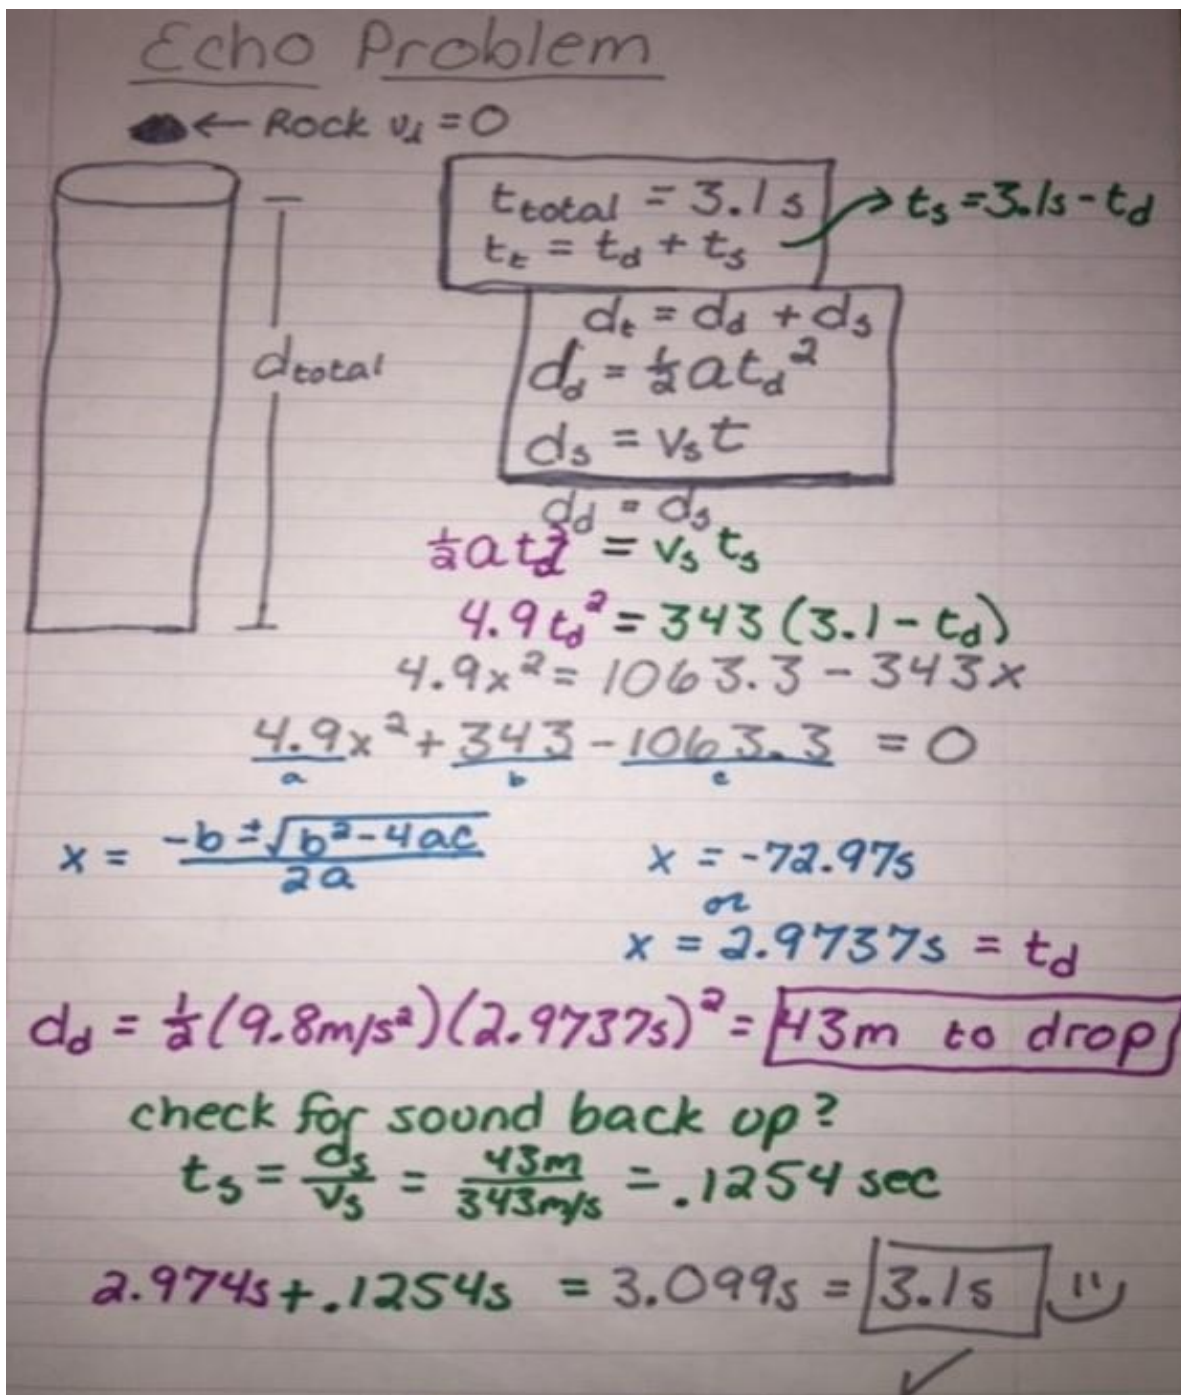 Echo Problem
← Rock v₁ = 0
t_total = 3.1s
t_t = t_d + t_s → t_s = 3.1s - t_d
d_t = d_d + d_s
d_total
d_d = ½at_d²
d_s = v_s t
d_d = d_s
½at_d² = v_s t_s
4.9t_d² = 343(3.1 - t_d)
4.9x² = 1063.3 - 343x
4.9x² + 343 - 1063.3 = 0
a b c
x = (-b ± √(b² - 4ac))/2a
x = -72.97s
or
x = 2.9737s = t_d
d_d = ½(9.8m/s²)(2.9737s)² = 43m to drop
check for sound back up?
t_s = d_s/v_s = 43m/343m/s = .1254 sec
2.974s + .1254s = 3.099s = 3.1s